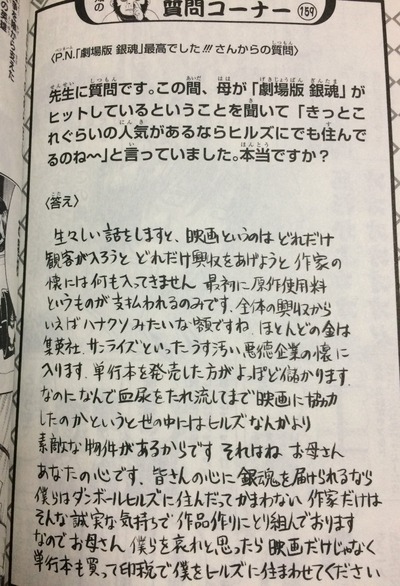 質問コーナー 159
〈P.N.「劇場版 銀魂」最高でした!!!さんからの質問〉
先生に質問です。この間、母が「劇場版 銀魂」が
ヒットしているということを聞いて「きっとこ
れぐらいの人気があるならヒルズにでも住んで
るのね〜〜」と言っていました。本当ですか？
〈答え〉
生々しい話をしますと、映画というのは どれだけ
観客が入ろうと どれだけ興収をあげようと 作家の
懐には何も入ってきません 最初に原作使用料
というものが支払われるのみです。全体の興収から
いえばハナクソみたいな額ですね。ほとんどの金は
集英社、サンライズといったうす汚い悪徳企業の懐に
入ります。単行本を発売した方がよっぽど儲かります。
なのになんで血尿をたれ流してまで映画に協力
したのかというと世の中にはヒルズなんかより
素敵な物件があるからです それはね お母さん
あなたの心です。皆さんの心に 銀魂を届けられるなら
僕らはダンボールヒルズに住んだってかまわない 作家だけは
そんな誠実な気持ちで 作品作りにとり組んでおります
なのでお母さん 僕らを哀れと思ったら 映画だけじゃなく
単行本も買って印税で僕をヒルズに住まわせてください